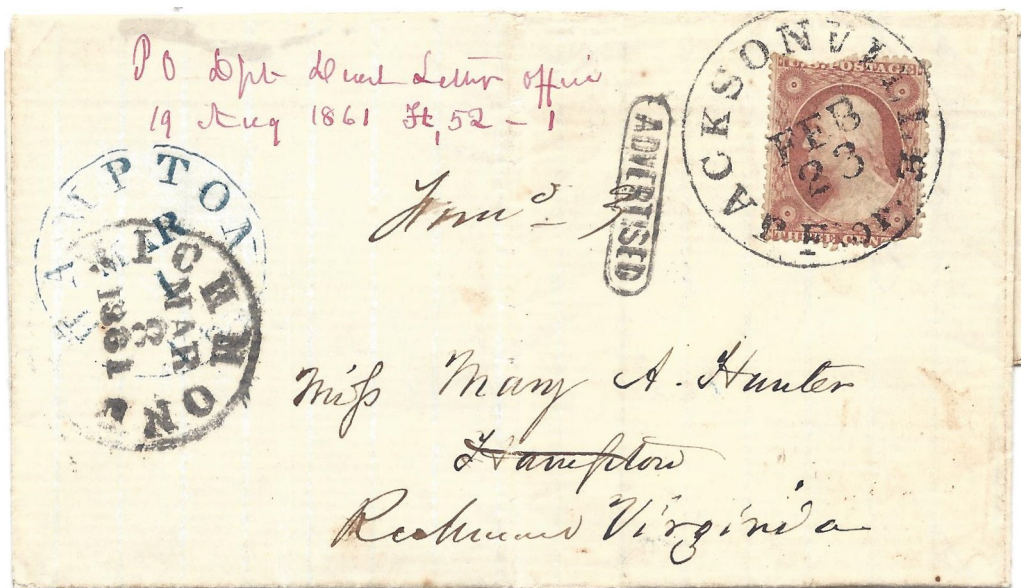 P O Dpt Dead Letter office
19 Aug 1861 H, 52 - 1
JACKSONVILLE
FEB
23
TE.
U.S. POSTAGE
ADVERTISED
HAMPTON
MAR
RICHMOND
MAR
1861
Miſs Mary A. Hunter
Hampton
Richmond Virginia